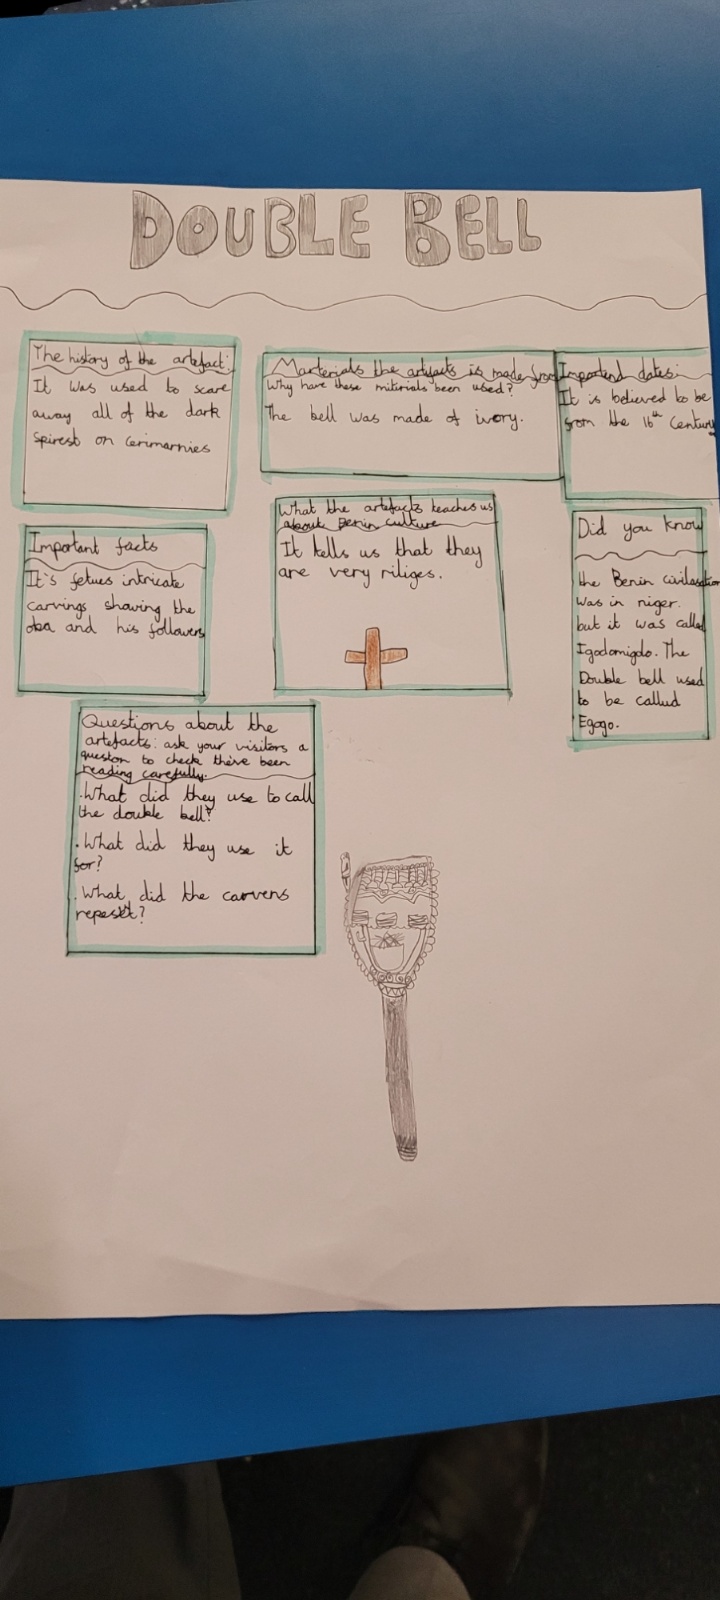 DOUBLE BELL
The history of the artefact:
It was used to scare
away all of the dark
Spirest on cerimarnies
Marterials the artefacts is made from
Why have these mitirials been used?
The bell was made of ivory.
Importand dates:
It is believed to be
from the 16th Century
Important facts
It's fetues intricate
carvings showing the
oba and his followers
What the artefacts teaches us
about Benin culture
It tells us that they
are very riliges.
Did you know
the Benin civilasation
was in niger.
but it was called
Igodomigdo. The
Double bell used
to be callud
Egogo.
Questions about the
artefacts: ask your visitors a
queston to check theive been
reading carefully.
.What did they use to call
the double bell?
.What did they use it
for?
.What did the carvens
repeset?